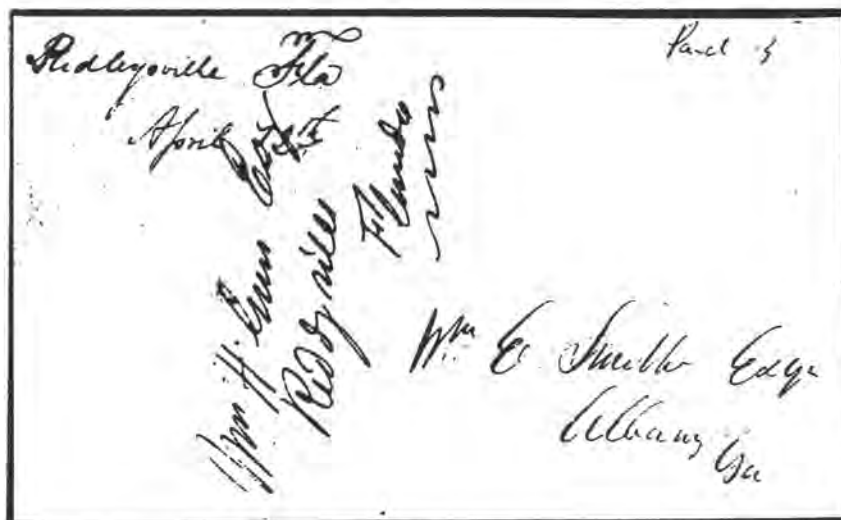 Ridleysville Fla
April 5th
Paid 5
Wm H
Ridgville
Florida
Wm E Smith Esqr
Albany Ga